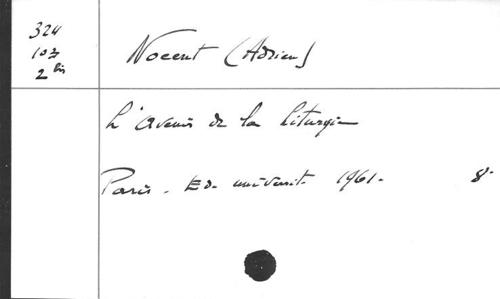 324
103
2 bis
Nocent (Adrien)
L'avenir de la liturgie
Paris. Ed. universit. 1961. 8°